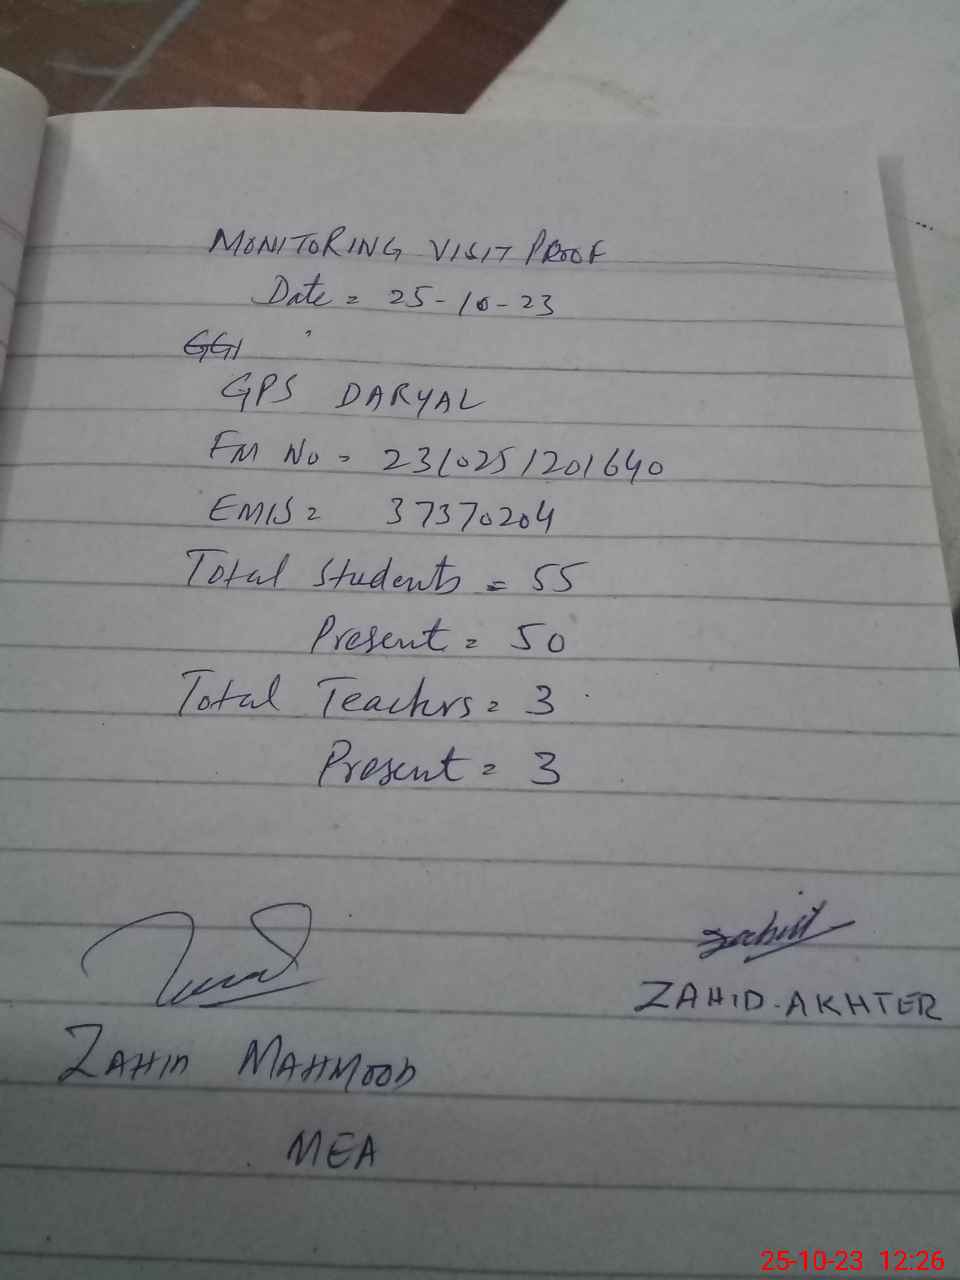 MONITORING VISIT PROOF
Date = 25-10-23
GGI
GPS DARYAL
FM No = 2310251201640
EMIS = 37370204
Total Students = 55
Present = 50
Total Teachrs = 3
Present = 3
ZAHID AKHTER
ZAHID MAHMOOD
MEA
25-10-23 12:26